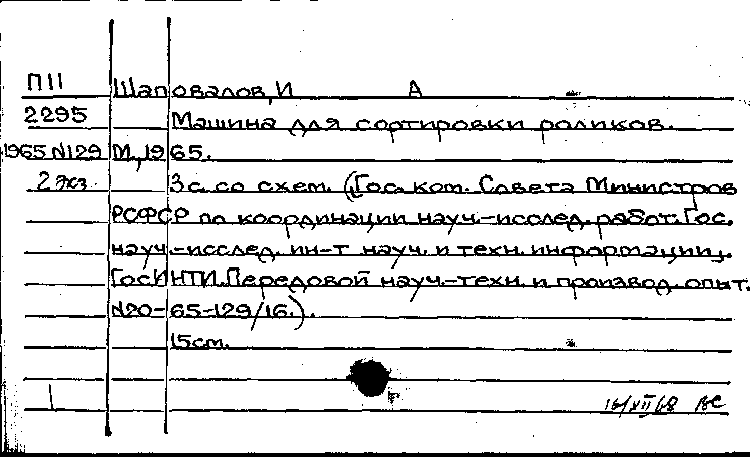 П11 Шаповалов, И А
2295 Машина для сортировки роликов.
1965 N129 М., 1965.
2 экз. 3 с. со схем. (Гос. ком. Совета Министров
РСФСР по координации науч.-исслед. работ. Гос.
науч.-исслед. ин-т науч. и техн. информации,
ГОСИНТИ. Передовой науч.-техн. и производ. опыт.
N20-65-129/16.).
15 см.
16/XII 68